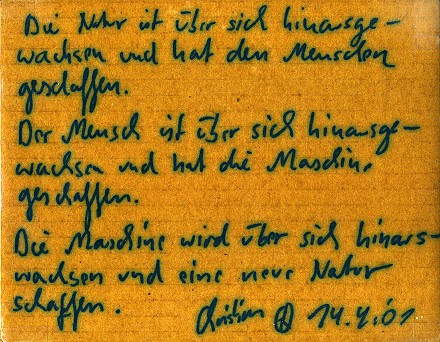 Die Natur ist über sich hinausge-
wachsen und hat den Menschen
geschaffen.
Der Mensch ist über sich hinausge-
wachsen und hat die Maschine
geschaffen.
Die Maschine wird über sich hinaus-
wachsen und eine neue Natur
schaffen.
14.4.01